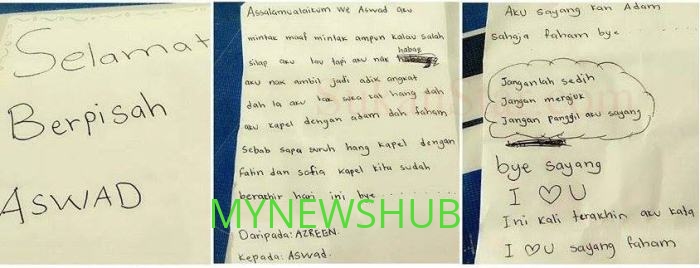 Selamat
Berpisah
ASWAD
Assalamualaikum we Aswad aku
mintak maaf mintak ampun kalau salah
silap aku tau tapi aku nak habaq
aku nak ambil jadi adik angkat
dah la aku tak suka kat hang dah
aku kapel dengan adam dah faham
sebab sapa suruh hang kapel dengan
fatin dan sofia kapel kita sudah
berakhir hari ini bye ..........
Daripada: AZREEN.
Kepada: Aswad.
MYNEWSHUB
Aku sayang kan Adam
sahaja faham bye ..........
Janganlah sedih
Jangan merajuk
Jangan panggil aku sayang
bye sayang
I ♡ U
Ini kali terakhir aku kata
I ♡ U sayang faham